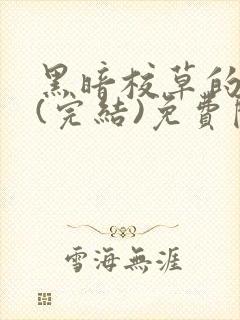 黑暗校草的
(完結)免費
雪海無涯